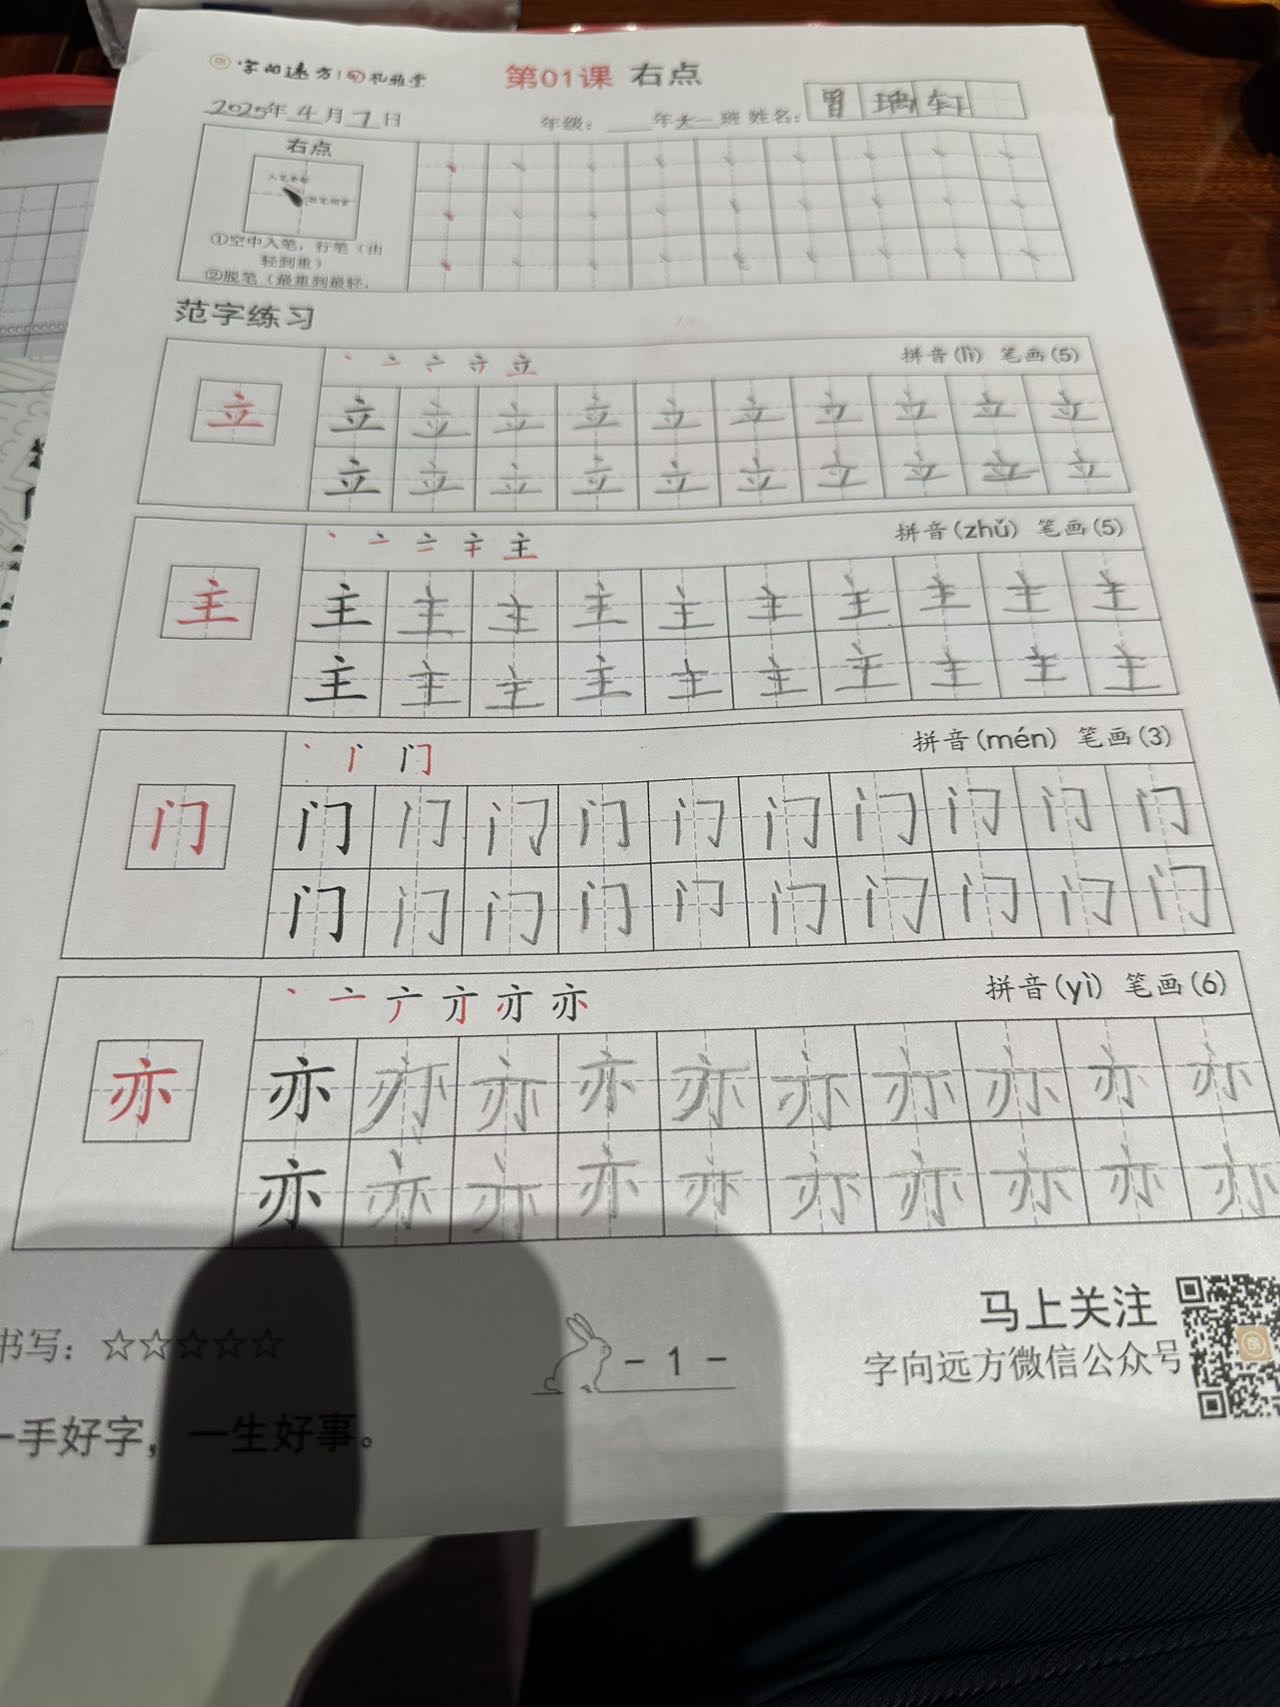 字向远方 礼雅堂
第01课 右点
2025年4月7日 年级：年大一班 姓名：曾瑀轩
右点
①空中入笔，行笔（由
轻到重）
②脱笔（最重到最轻，
范字练习
拼音(lì) 笔画(5)
立 立 立 立 立 立 立 立 立 立 立
立 立 立 立 立 立 立 立 立 立
拼音(zhǔ) 笔画(5)
主 主 主 主 主 主 主 主 主 主 主
主 主 主 主 主 主 主 主 主 主
拼音(mén) 笔画(3)
门 门 门 门 门 门 门 门 门 门 门
门 门 门 门 门 门 门 门 门 门
拼音(yì) 笔画(6)
亦 亦 亦 亦 亦 亦 亦 亦 亦 亦 亦
亦 亦 亦 亦 亦 亦 亦 亦 亦 亦
书写：☆☆☆☆☆
一手好字，一生好事。
- 1 -
马上关注
字向远方微信公众号